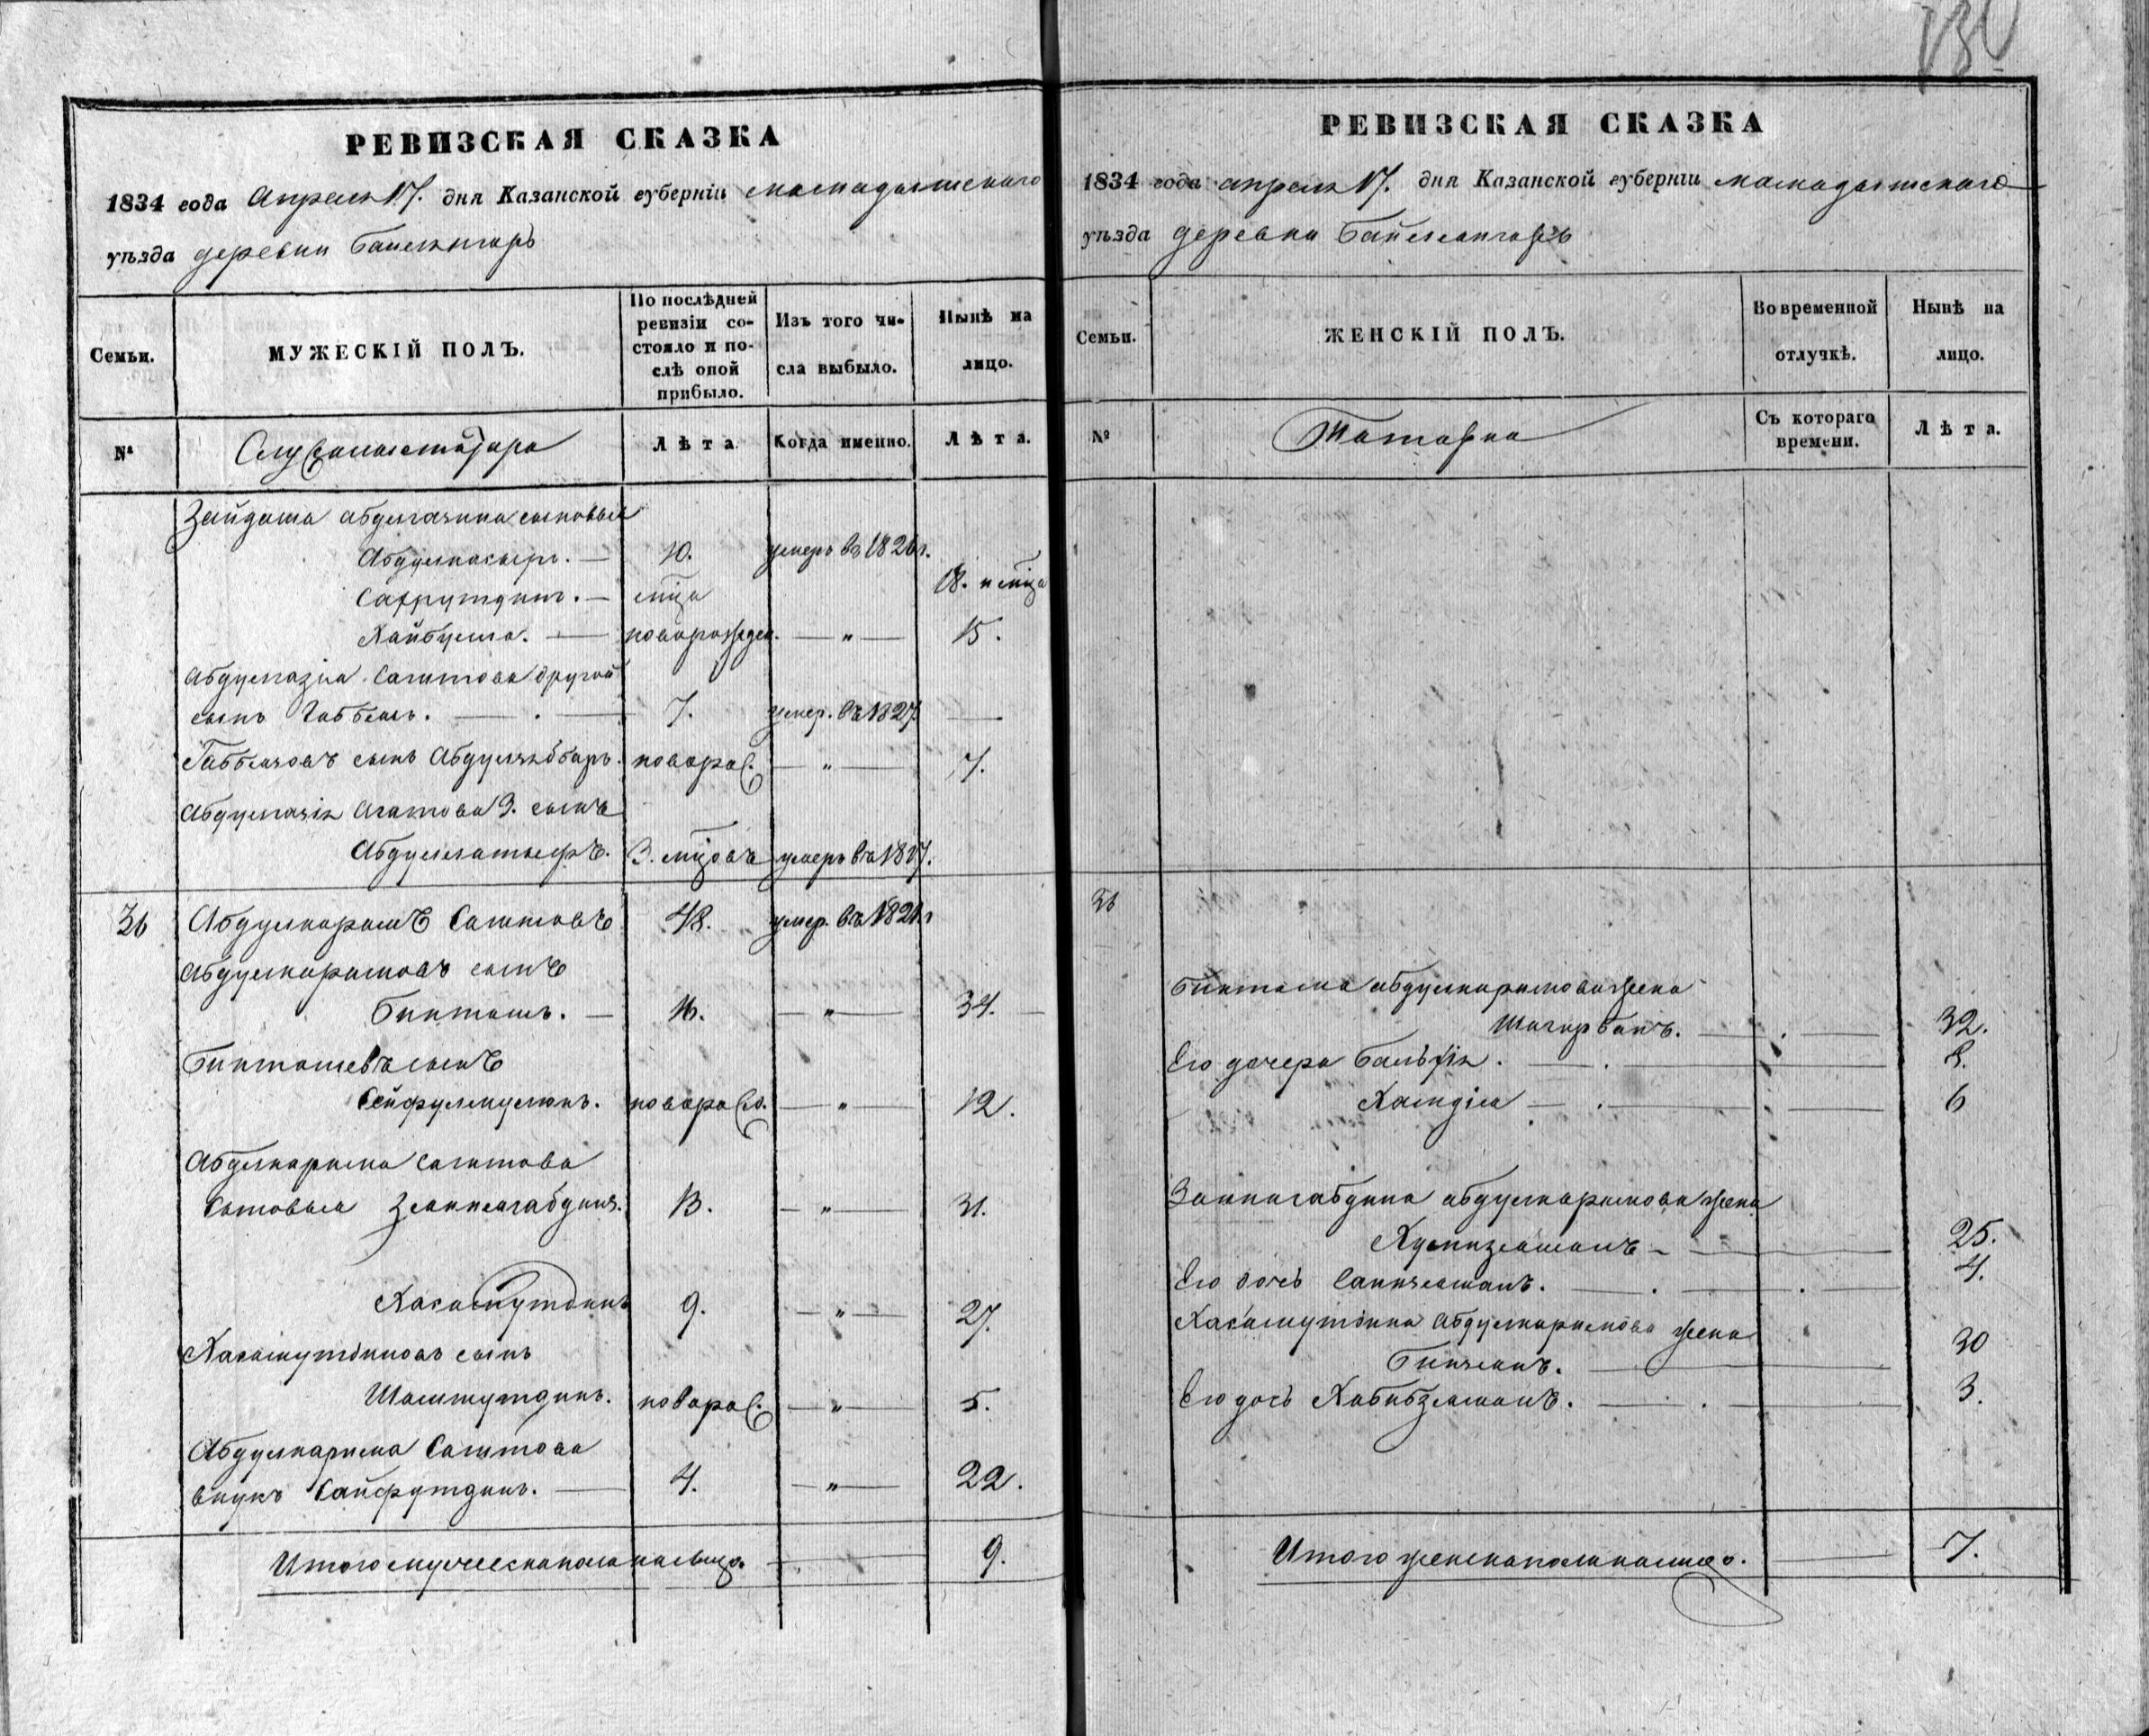 130
РЕВИЗСКАЯ СКАЗКА
1834 года Апреля 17. дня Казанской губерніи Мамадышскаго
уѣзда деревни Баилянгаръ
Семьи.
МУЖЕСКІЙ ПОЛЪ.
По послѣдней ревизіи состояло и послѣ оной прибыло.
Изъ того числа выбыло.
Нынѣ на лицо.
№
Лѣта
Когда именно.
Лѣта.
Зайдаша абделгазина сыновья
Абдулнасыръ. — 10. умеръ въ 1826 г.
— мца 18. и мца
Хайбулла. — новорожден. — " — 15.
Абдулгазиа Сагитова другой
сынъ Габбасъ. — . — 7. умер. въ 1827 —
Габбасовъ сынъ Абдулзяббаръ. новорож. — " — 7.
3. сынъ
Абдуллатыфъ. 3. мцовъ умеръ въ 1817.
36 Абдулкаримъ Сагитовъ 48. умер. въ 1821 г
Абдулкаримовъ сынъ
Бикташъ. — 16. — " — 34. —
Бикташевъ сынъ
Сейфулмулюкъ. новорожд. — " — 12.
Абдулкарима Сагитова
Сыновья Зейнилгабдинъ. 13. — " — 31.
Хисамутдинъ 9. — " — 27.
Хисамутдиновъ сынъ
Шамшутдинъ. новорож. — " — 5.
Абдулкарима Сагитова
внукъ Сайфутдинъ. — 4. — " — 22.
Итого мужеска пола на лицо. — 9.
РЕВИЗСКАЯ СКАЗКА
1834 года апреля 17. дня Казанской губерніи Мамадышскаго
уѣзда деревни Байлянгаръ
Семьи.
ЖЕНСКІЙ ПОЛЪ.
Во временной отлучкѣ.
Нынѣ на лицо.
№
Татарка
Съ котораго времени.
Лѣта.
36
Бикташа абдулкаримова жена
Шагарбанъ. — . — 32.
Его дочери — . — 8.
Хамдіа — . — 6
Зайнигабдина абдулкаримова жена
— 25.
Его дочь — . — . — 4.
Хисамутдина Абдулкаримова жена
Бикянъ. — 30
Его дочь Хабибзяманъ. — . — 3.
Итого женска пола на лицо. — 7.